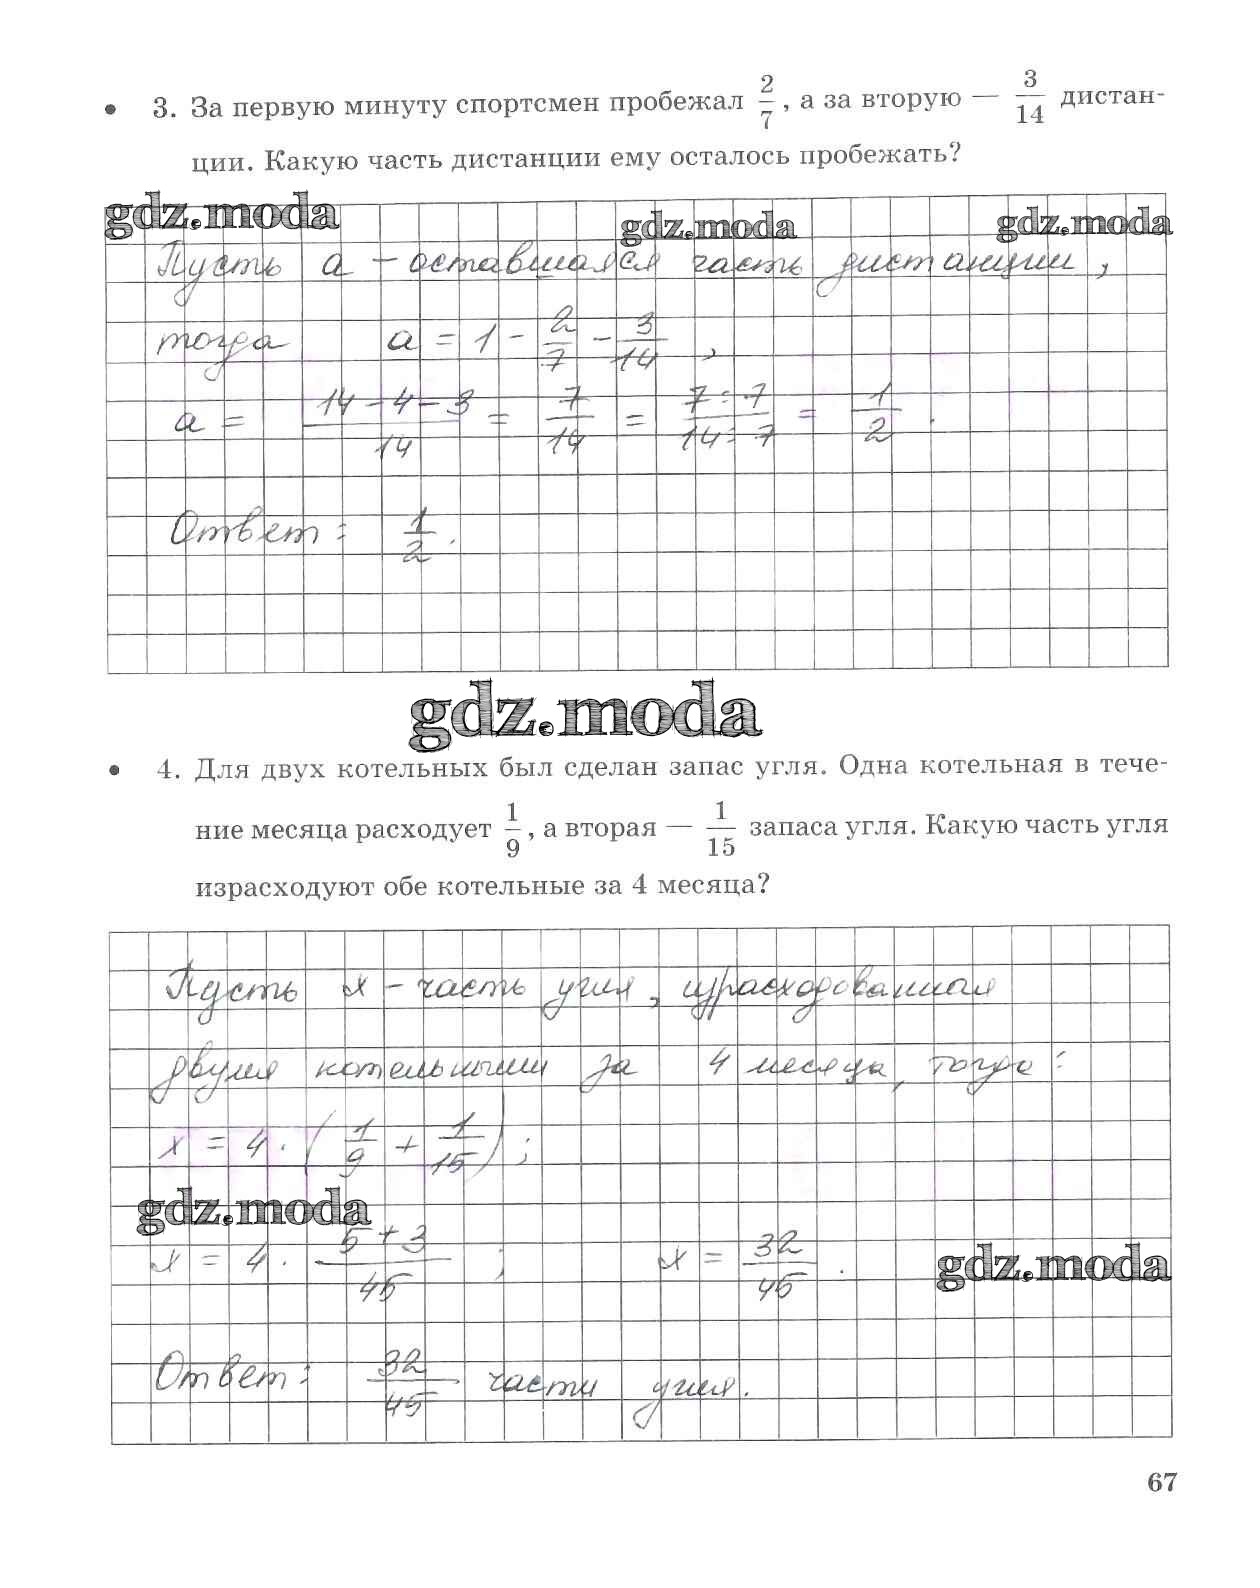 • 3. За первую минуту спортсмен пробежал 2/7, а за вторую — 3/14 дистан-
ции. Какую часть дистанции ему осталось пробежать?
gdz.moda gdz.moda gdz.moda
Пусть a – оставшаяся часть дистанции,
тогда a = 1 - 2/7 - 3/14,
a = (14 - 4 - 3)/14 = 7/14 = (7:7)/(14:7) = 1/2.
Ответ: 1/2.
gdz.moda
• 4. Для двух котельных был сделан запас угля. Одна котельная в тече-
ние месяца расходует 1/9, а вторая — 1/15 запаса угля. Какую часть угля
израсходуют обе котельные за 4 месяца?
Пусть x – часть угля, израсходованная
двумя котельными за 4 месяца, тогда:
x = 4 · (1/9 + 1/15);
gdz.moda
x = 4 · (5+3)/45; x = 32/45.
gdz.moda
Ответ: 32/45 части угля.
67